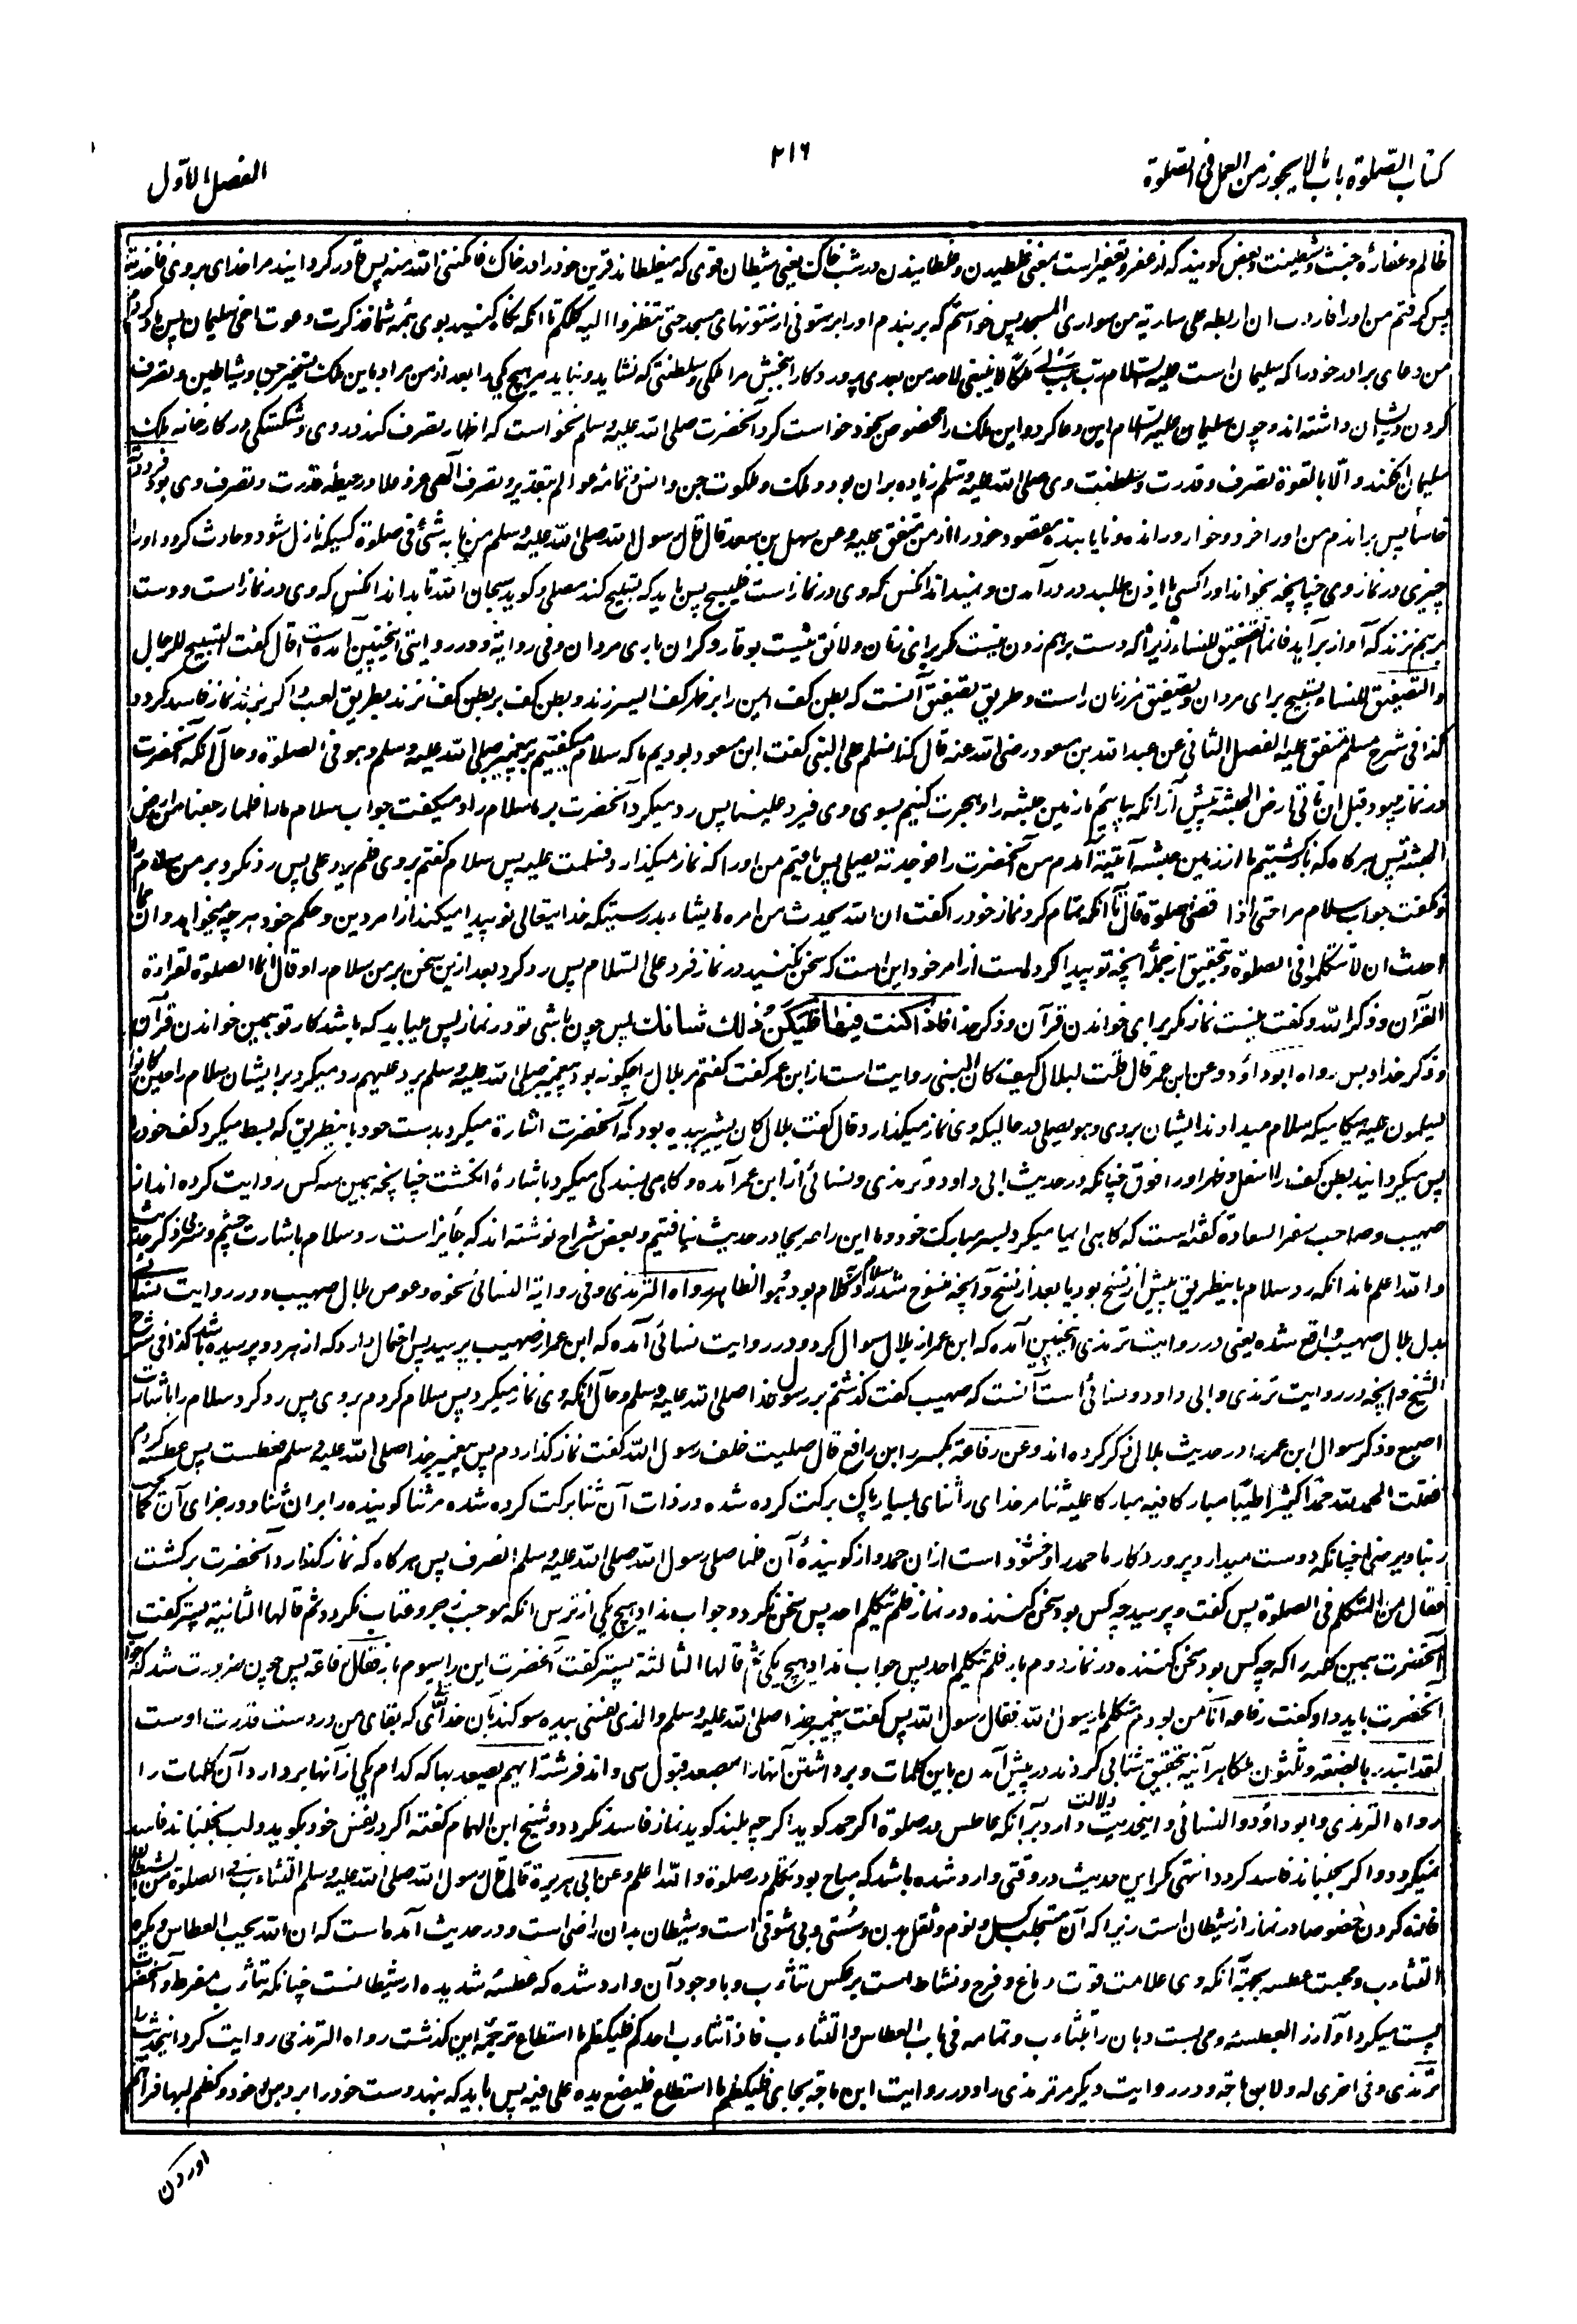 کتاب الصّلوة باب ما لا یجوز من العمل فی الصلوة
۲۱۶
الفصل الاوّل
ظالم و عفاره خبث و شیطنت و بعض گویند که از عفر و تعفیر است بمعنی غلطیدن و غلطانیدن در خاک یعنی شیطان قوی که میغلطاند قرین خود را در خاک فامکننی الله منه پس قادر گردانید مرا خدای بر وی فاخذته
پس گرفتم من او را فاردت ان اربطه علی ساریة من سواری المسجد پس خواستم که بربندم او را بر ستونی از ستونهای مسجد حتی تنظروا الیه کلکم تا آنکه نگاه کنید بوی همه شما فذکرت دعوة اخی سلیمان پس یاد کردم
من دعای برادر خود را که سلیمان است علیه السلام رب هب لی ملکا لا ینبغی لاحد من بعدی پروردگارا ببخش مرا ملکی و سلطنتی که نشاید و نباید مر هیچ یکی را بعد از من مراد باین ملک تسخیر جن و شیاطین و تصرف
کردن در ایشان داشته اند و چون سلیمان علیه السلام این دعا کرد و این ملک را مخصوص بخود خواست کرد آنحضرت صلی الله علیه وسلم نخواست که اظهار تصرف کند در وی و شکستگی در کارخانه ملک
سلیمان نکند و الّا بالقوة تصرف و قدرت و سلطنت وی صلی الله علیه وسلم زیاده بران بود و ملک و ملکوت جن و انس و تمامه عوالم بتقدیر و تصرف الهی عز و علا در حیطهٔ قدرت و تصرف وی بود فرددته
خاسئا پس براندم من او را خرد و خوار و رانده و نایابنده مقصود خود را از من متفق علیه و عن سهل بن سعد قال قال رسول الله صلی الله علیه وسلم من نابه شئ فی صلوته کسیکه نازل شود و حادث گردد او را
چیزی در نماز وی چنانچه بخواند او را کسی یا اذن طلبد در درآمدن و نمیداند آنکس که وی در نماز است فلیسبح پس باید که تسبیح کند مصلی و گوید سبحان الله تا بداند آنکس که وی در نماز است و دست
برهم نزند که آواز برآید فانما التصفیق للنساء زیرا که دست برهم زدن نیست مگر برای زنان و لائق نیست بوقار و گران باری مردان و فی روایة و در روایتی اینچنین آمده است قال گفت التسبیح للرجال
و التصفیق للنساء تسبیح برای مردان و تصفیق مر زنان راست و طریق تصفیق آنست که بطن کف الیمن را بر ظهر کف الیسر زند و بطن کف بر بطن کف نزند بطریق لعب و اگر بزند نماز فاسد گردد
کذا فی شرح مسلم متفق علیه الفصل الثانی عن عبد الله بن مسعود رضی الله عنه قال کنا نسلم علی النبی گفت ابن مسعود بودیم ما که سلام میگفتیم بر پیغمبر صلی الله علیه وسلم و هو فی الصلوة و حال آنکه آنحضرت
در نماز میبود قبل ان ناتی ارض الحبشة پیش از آنکه بیائیم ما زمین حبشه را و هجرت کنیم بسوی وی فیرد علینا پس رد میکرد آنحضرت بر ما سلام را و میگفت جواب سلام ما را فلما رجعنا من ارض
الحبشة پس هرگاه که بازگشتیم ما از زمین حبشه آتیته آمدم من آنحضرت را فوجدته یصلی پس یافتم من او را که نماز میگذارد فسلمت علیه پس سلام گفتم بر وی فلم یرد علی پس رد نکرد بر من سلام مرا
و نگفت جواب سلام مرا حتی اذا قضی صلوته قال تا آنکه تمام کرد نماز خود را گفت ان الله یحدث من امره ما یشاء بدرستیکه خدایتعالی نو پیدا میکند از امر دین و حکم خود هر چه میخواهد و ان مما
احدث ان لا تتکلموا فی الصلوة و بتحقیق از جمله آنچه نو پیدا کرده است از امر خود این است که سخن نکنید در نماز فرد علی السلام پس رد کرد بعد ازین سخن بر من سلام را و قال انما الصلوة لقراءة
القرآن و ذکر الله و گفت نیست نماز مگر برای خواندن قرآن و ذکر خدا فاذا کنت فیها فلیکن ذلک شانک پس چون باشی تو در نماز پس میباید که باشد کار تو همین خواندن قرآن
و ذکر خدا و بس رواه ابو داؤد و عن ابن عمر قال قلت لبلال کیف کان النبی روایت است از ابن عمر گفت گفتم مر بلال را چگونه بود پیغمبر صلی الله علیه وسلم یرد علیهم رد میکرد بر ایشان سلام را حین کانوا
یسلمون علیه هنگامیکه سلام میدادند ایشان بر وی و هو یصلی در حالیکه وی نماز میگذارد قال گفت بلال کان یشیر بیده بود که آنحضرت اشارة میکرد بدست خود باینطریق که بسط میکرد کف خود را
پس میگردانید بطن کف را اسفل و ظهر او را فوق چنانکه در حدیث ابی داود و ترمذی و نسائی از ابن عمر آمده و گاهی بسندگی میکرد باشارهٔ انگشت چنانچه همین سه کس روایت کرده اند از
صهیب و صاحب سفر السعادة گفته است که گاهی ایما میکرد بسر مبارک خود و ما این را هیچ جا در حدیث نیافتیم و بعض شراح نوشته اند که جائز است رد سلام باشارت چشم و سر و ذکر حدیث
و الله اعلم ماند آنکه رد سلام باینطریق پیش از نسخ بود یا بعد از نسخ و آنچه منسوخ شد سلام و رد کلام بود و هو الظاهر رواه الترمذی و فی روایة النسائی نحوه و عوض بلال صهیب و در روایت نسائی
بدل بلال صهیب واقع شده یعنی در روایت ترمذی اینچنین آمده که ابن عمر از بلال سوال کرد و در روایت نسائی آمده که ابن عمر از صهیب پرسید پس احتمال دارد که از هر دو پرسیده باشد کذا فی شرح
الشیخ و آنچه در روایت ترمذی و ابی داود و نسائی است آنست که صهیب گفت گذشتم بر رسول خدا صلی الله علیه وسلم و حال آنکه وی نماز میکرد پس سلام کردم بر وی پس رد کرد سلام را باشارت
اصبع و ذکر سوال ابن عمر را در حدیث بلال ذکر کرده اند و عن رفاعة بکسر راء ابن رافع قال صلیت خلف رسول الله گفت نماز گذاردم پس پیغمبر خدا صلی الله علیه وسلم فعطست پس عطسه کردم
فقلت الحمد لله حمدا کثیرا طیبا مبارکا فیه مبارکا علیه ثنا مر خدای را ثنای بسیار پاک برکت کرده شده در ذات آن ثنا برکت کرده شده مر ثنا گوینده را بران ثنا و در جزای آن کما یحب
ربنا و یرضی چنانکه دوست میدارد پروردگار ما حمد را و خشنود است ازان حمد و از گویندهٔ آن فلما صلی رسول الله صلی الله علیه وسلم انصرف پس هرگاه که نماز گذارد آنحضرت برگشت
فقال من المتکلم فی الصلوة پس گفت و پرسید چه کس بود سخن کننده در نماز فلم یتکلم احد پس سخن نکرد و جواب نداد هیچ یکی از ترس آنکه موجب زجر و عتاب نگردد ثم قالها الثانیة پستر گفت
آنحضرت همین کلمه را که چه کس بود سخن کننده در نماز دوم بار فلم یتکلم احد پس جواب نداد هیچ یکی ثم قالها الثالثة پستر گفت آنحضرت این را سیوم بار فقال رفاعة پس چون ضرورت شد که جواب
آنحضرت باید داد گفت رفاعه انا من بودم متکلم یا رسول الله فقال رسول الله پس گفت پیغمبر خدا صلی الله علیه وسلم و الذی نفسی بیده سوگند بآن خدائی که بقای من در دست قدرت اوست
لقد ابتدرها بضعة و ثلثون ملکا هر آئینه بتحقیق شتابی کردند در پیش آمدن باین کلمات و برداشتن آنها را بمصعد قبول سی و اند فرشته ایهم یصعد بها که کدام یکی از آنها بردارد آن کلمات را
رواه الترمذی و ابو داؤد و النسائی و اینحدیث دلالت دارد بر آنکه عاطس در صلوة اگر حمد گوید اگر چه بلند گوید نماز فاسد نگردد و شیخ ابن الهمام گفته اگر در نفس خود بگوید و لب نجنباند فاسد
نمیگردد و اگر بجنباند فاسد گردد انتهی مگر این حدیث در وقتی وارد شده باشد که مباح بود تکلم در صلوة و الله اعلم و عن ابی هریرة قال قال رسول الله صلی الله علیه وسلم التثاءب فی الصلوة من الشیطان
فاژه کردن خصوصا در نماز از شیطان است زیرا که آن مستجلب کسل و نوم و ثقل بدن و سستی و بی شوقی است و شیطان بدان راضی است و در حدیث آمده است که ان الله یحب العطاس و یکره
التثاءب و محبت عطسه بجهة آنکه وی علامت قوت دماغ و فرح و نشاط است برعکس تثاؤب و با وجود آن وارد شده که عطسهٔ شدیده از شیطانست چنانکه تثاؤب مفرط و آنحضرت
پست میکرد آواز را در عطسه و می بست دهان را بتثاءب و تمامه فی باب العطاس و التثاءب فاذا تثاءب احدکم فلیکظم ما استطاع ترجمهٔ این گذشت رواه الترمذی روایت کرد اینحدیث را
ترمذی و فی اخری له و لابن ماجة و در روایت دیگر مر ترمذی را و در روایت ابن ماجه بجای فلیکظم ما استطاع فلیضع یده علی فیه پس باید که بنهد دست خود را بر دهن خود و کظم لبها فراهم
اوردن